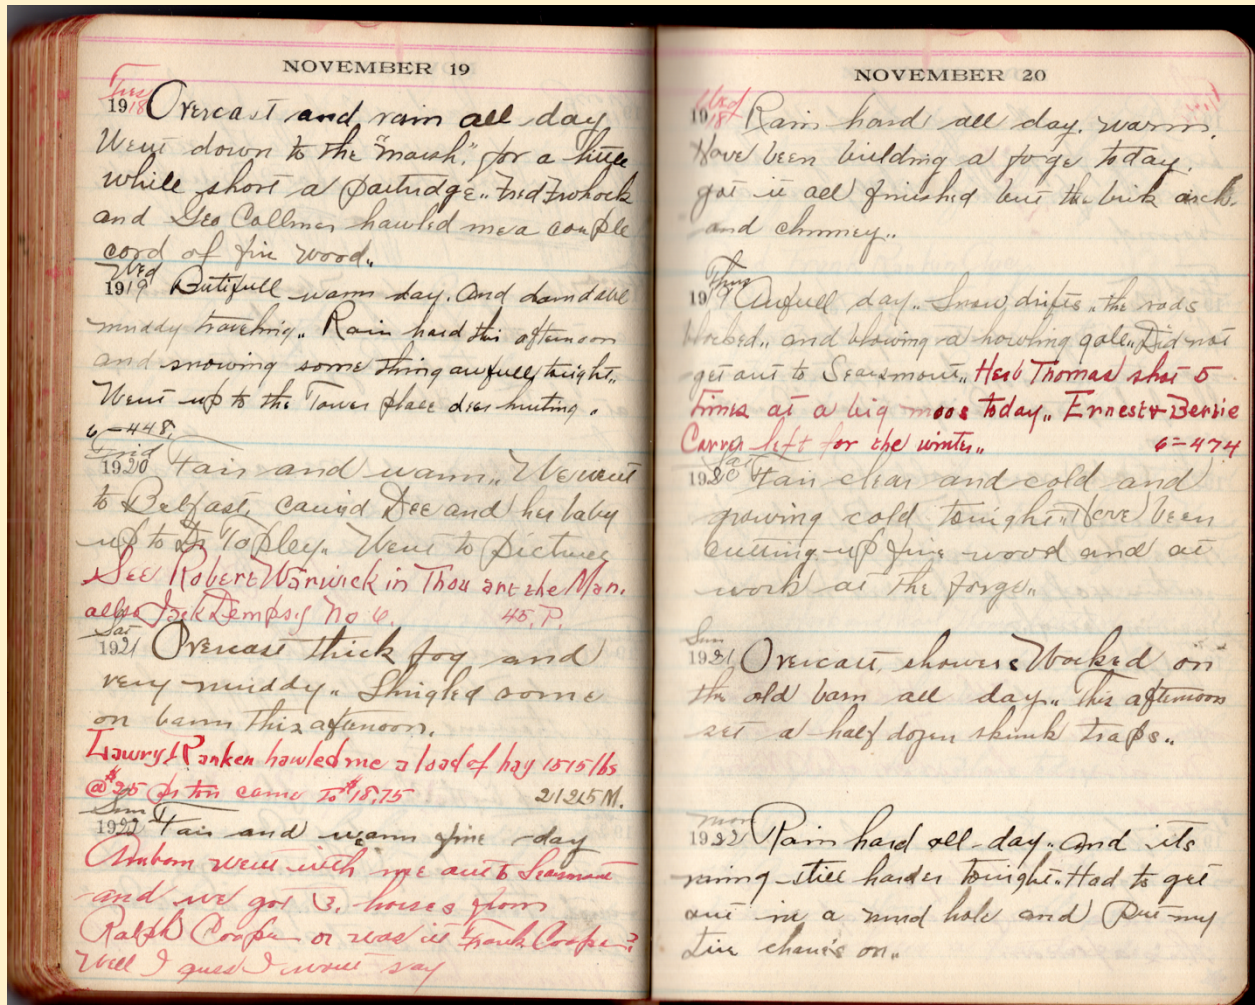 NOVEMBER 19
Tues
1918 Overcast and rain all day
Went down to the "marsh". for a little
while short a partridge.. Fred Frohock
and Geo Collmer hawled me a couple
cord of fire wood..
Wed
1919 Butifull warm day. And damdabl
muddy traveling.. Rain hard this afternoon
and snowing some thing awfull, tonight..
Went up to the Tower place deer hunting.
6-448.
Frid
1920 Fair and warm.. We went
to Belfast, carried Dee and her baby
up to Dr Topley.. Went to pictures
See Robert Warwick in Thou art the Man.
allso Jack Dempsy No 6. 45, P.
Sat
1921 Overcast thick fog and
very muddy.. Shingled some
on barn this afternoon.
Lawry & Ranken hawled me a load of hay 1515 lbs
@ $25 per ton came to $18,75 2125 M.
Sun
1922 Fair and warm fine day
went with me out to Searsmont
and we got 3, horses from
Ralph Cooper or was it Frank Cooper?
Well I guess I wont say
NOVEMBER 20
Wed
1918 Rain hard all day. warm.
Have been building a foge today.
got it all finished but the brik arch.
and chimney..
Thur
1919 Awfull day.. Snow drifts.. the rods
blocked.. and blowing a howling gale.. Did not
get out to Searsmont.. Herb Thomas shot 5
times at a big moos today.. Ernest & Bertie
Carver left for the winter.. 6=474
Sat
1920 Fair clear and cold and
growing cold tonight.. Have been
cutting up fire wood and at
work at the forge..
Sun
1921 Overcast, showers Worked on
the old barn all day.. This afternoon
set a half dozen skunk traps..
mon
1922 Rain hard all-day.. and its
raning still harder tonight.. Had to get
out in a mud hole and put my
tire chanes on..